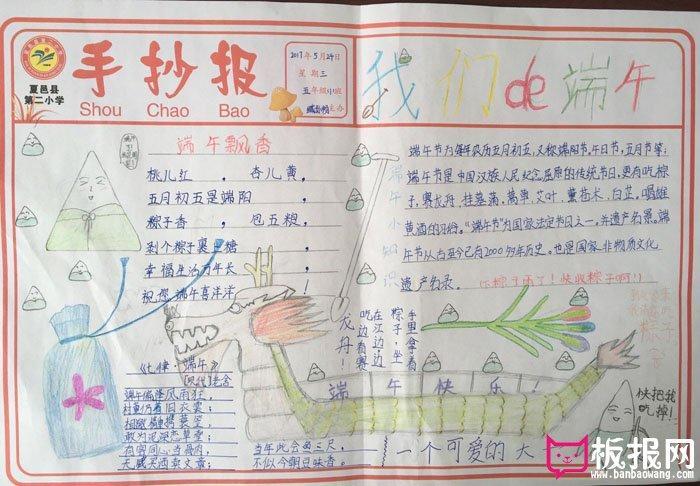 手抄报
Shou Chao Bao
夏邑县
第二小学
2017年5月24日
星期三
五年级 班
主办
我们de端午
端午飘香
桃儿红,杏儿黄,
五月初五是端阳
粽子香,包五粮,
剥个粽子裹上糖
幸福生活万年长
祝您端午喜洋洋!
端午小知识
端午节为每年农历五月初五,又称端阳节,午日节,五月节等;
端午节是中国汉族人民纪念屈原的传统节日,更有吃粽
子,赛龙舟,挂菖蒲,蒿草,艾叶,薰苍术,白芷,喝雄
黄酒的习俗。“端午节”为国家法定节日之一,并
端午节从古至今已有2000多年历史。也是国家非物质文化
遗产名录。
(下粽子雨了!快收粽子啊!!)
手里拿着
粽子,坐
在江边,
吃边看赛
龙舟!
端午快乐!
快把我
吃掉!
《七律·端午》
【现代】老舍
端午偏逢风雨狂,
村童仍着旧衣裳;
相邀情重携蓑笠,
敢为泥深恋草堂;
有客同心当骨肉,
无钱买酒卖文章;
当年此会鱼三尺,
不似今朝豆味香。
一个可爱的大
板报网
www.banbaowang.com